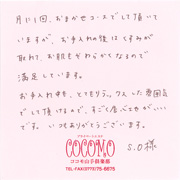 月に1回、おまかせコースでして頂いて
いますが、お手入れの後はくすみが
取れて、お肌もやわらかくなるので
満足しています。
お手入れ中も、とてもリラックスした雰囲気
でして頂けるので、すごく居心地がいい
です。いつもありがとうございます。
S.O様
COCOMO
ココモ山手倶楽部
TEL・FAX(0773)75-6675